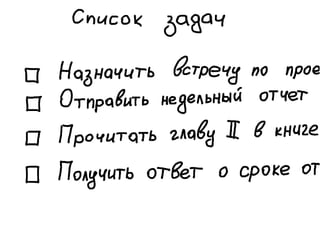 Список задач
Назначить встречу по прое
Отправить недельный отчет
Прочитать главу II в книге
Получить ответ о сроке от